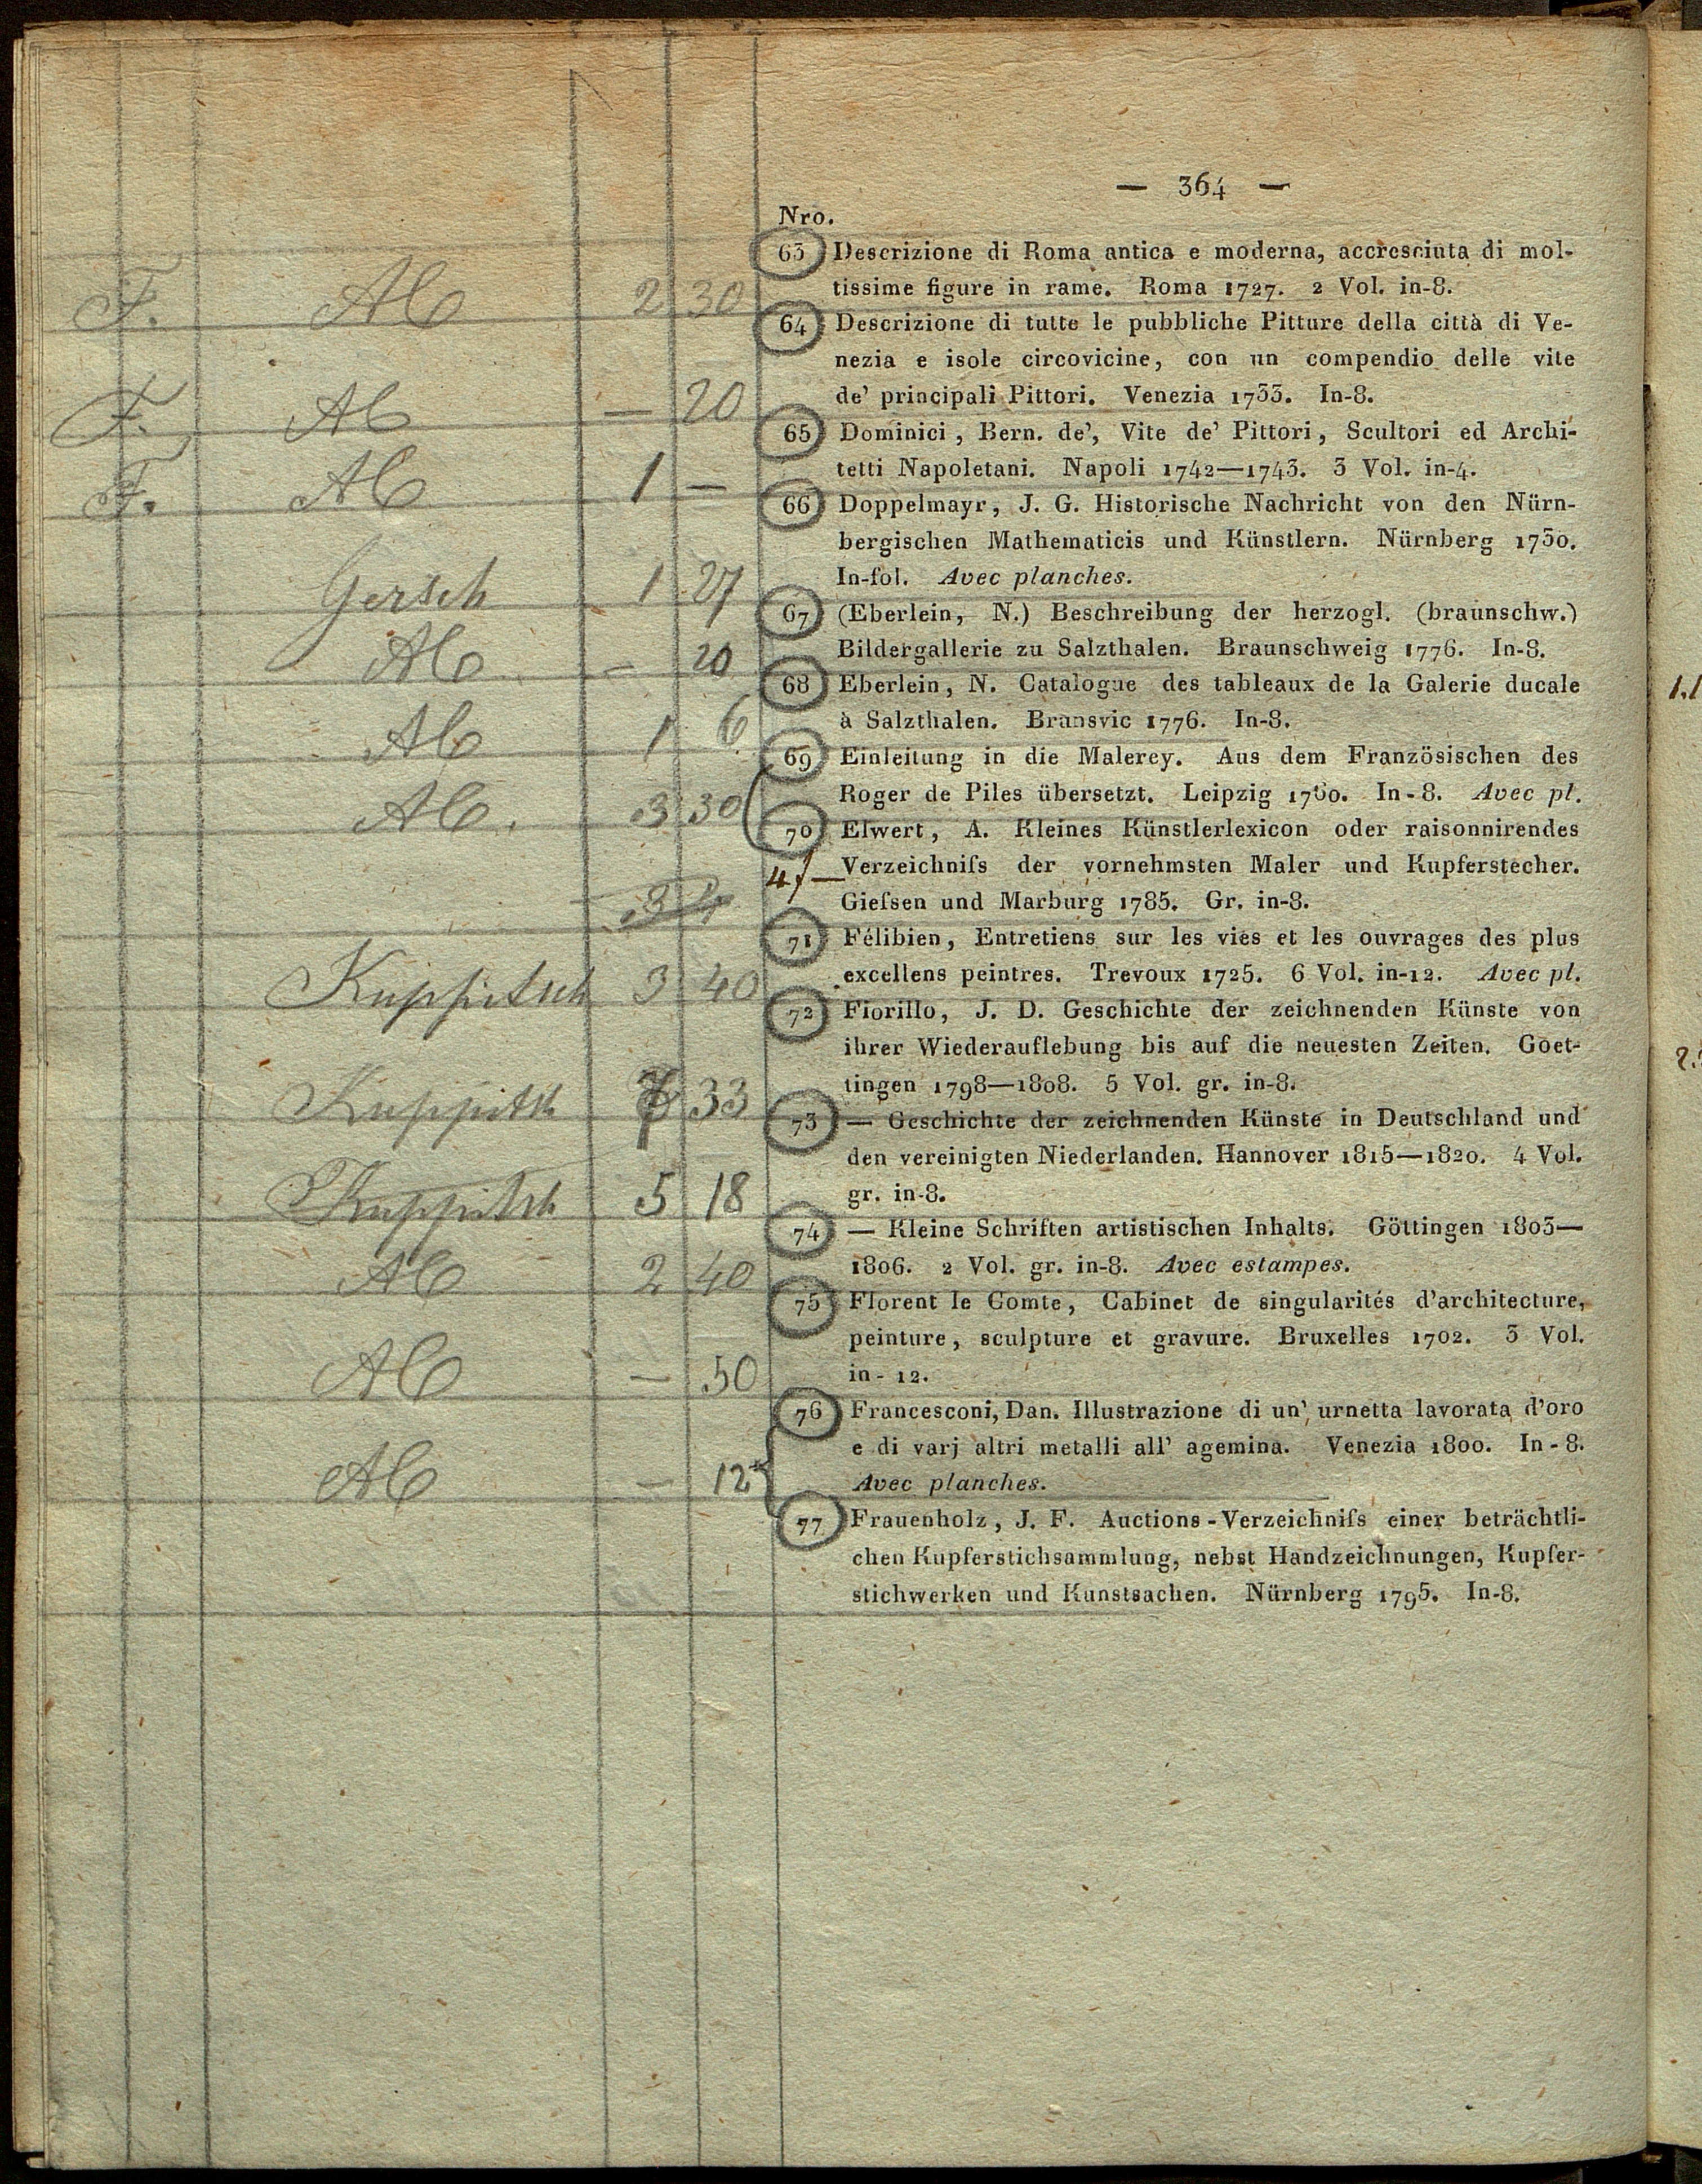 — 364 —
Nro.
63 Descrizione di Roma antica e moderna, accresciuta di mol-
F. AC 2 30 tissime figure in rame. Roma 1727. 2 Vol. in-8.
64 Descrizione di tutte le pubbliche Pitture della città di Ve-
nezia e isole circovicine, con un compendio delle vite
F. AC — 20 de' principali Pittori. Venezia 1733. In-8.
65 Dominici, Bern. de', Vite de' Pittori, Scultori ed Archi-
F. AC 1 — tetti Napoletani. Napoli 1742—1743. 3 Vol. in-4.
66 Doppelmayr, J. G. Historische Nachricht von den Nürn-
bergischen Mathematicis und Künstlern. Nürnberg 1730.
Gersch 1 27 In-fol. Avec planches.
67 (Eberlein, N.) Beschreibung der herzogl. (braunschw.)
AC — 20 Bildergallerie zu Salzthalen. Braunschweig 1776. In-8.
68 Eberlein, N. Catalogue des tableaux de la Galerie ducale
AC 1 6 à Salzthalen. Bransvic 1776. In-8.
69 Einleitung in die Malerey. Aus dem Französischen des
AC. 3 30 Roger de Piles übersetzt. Leipzig 1760. In-8. Avec pl.
70 Elwert, A. Kleines Künstlerlexicon oder raisonnirendes
Verzeichniſs der vornehmsten Maler und Kupferstecher.
Gieſsen und Marburg 1785. Gr. in-8.
71 Félibien, Entretiens sur les vies et les ouvrages des plus
Kuppitsch 3 40 excellens peintres. Trevoux 1725. 6 Vol. in-12. Avec pl.
72 Fiorillo, J. D. Geschichte der zeichnenden Künste von
ihrer Wiederauflebung bis auf die neuesten Zeiten. Goet-
Kuppitsch 33 tingen 1798—1808. 5 Vol. gr. in-8.
73 — Geschichte der zeichnenden Künste in Deutschland und
den vereinigten Niederlanden. Hannover 1815—1820. 4 Vol.
Kuppitsch 5 18 gr. in-8.
74 — Kleine Schriften artistischen Inhalts. Göttingen 1803—
AC 2 40 1806. 2 Vol. gr. in-8. Avec estampes.
75 Florent le Comte, Cabinet de singularités d'architecture,
peinture, sculpture et gravure. Bruxelles 1702. 3 Vol.
AC — 50 in-12.
76 Francesconi, Dan. Illustrazione di un' urnetta lavorata d'oro
e di varj altri metalli all' agemina. Venezia 1800. In-8.
AC — 12 Avec planches.
77 Frauenholz, J. F. Auctions-Verzeichniſs einer beträchtli-
chen Kupferstichsammlung, nebst Handzeichnungen, Kupfer-
stichwerken und Kunstsachen. Nürnberg 1795. In-8.